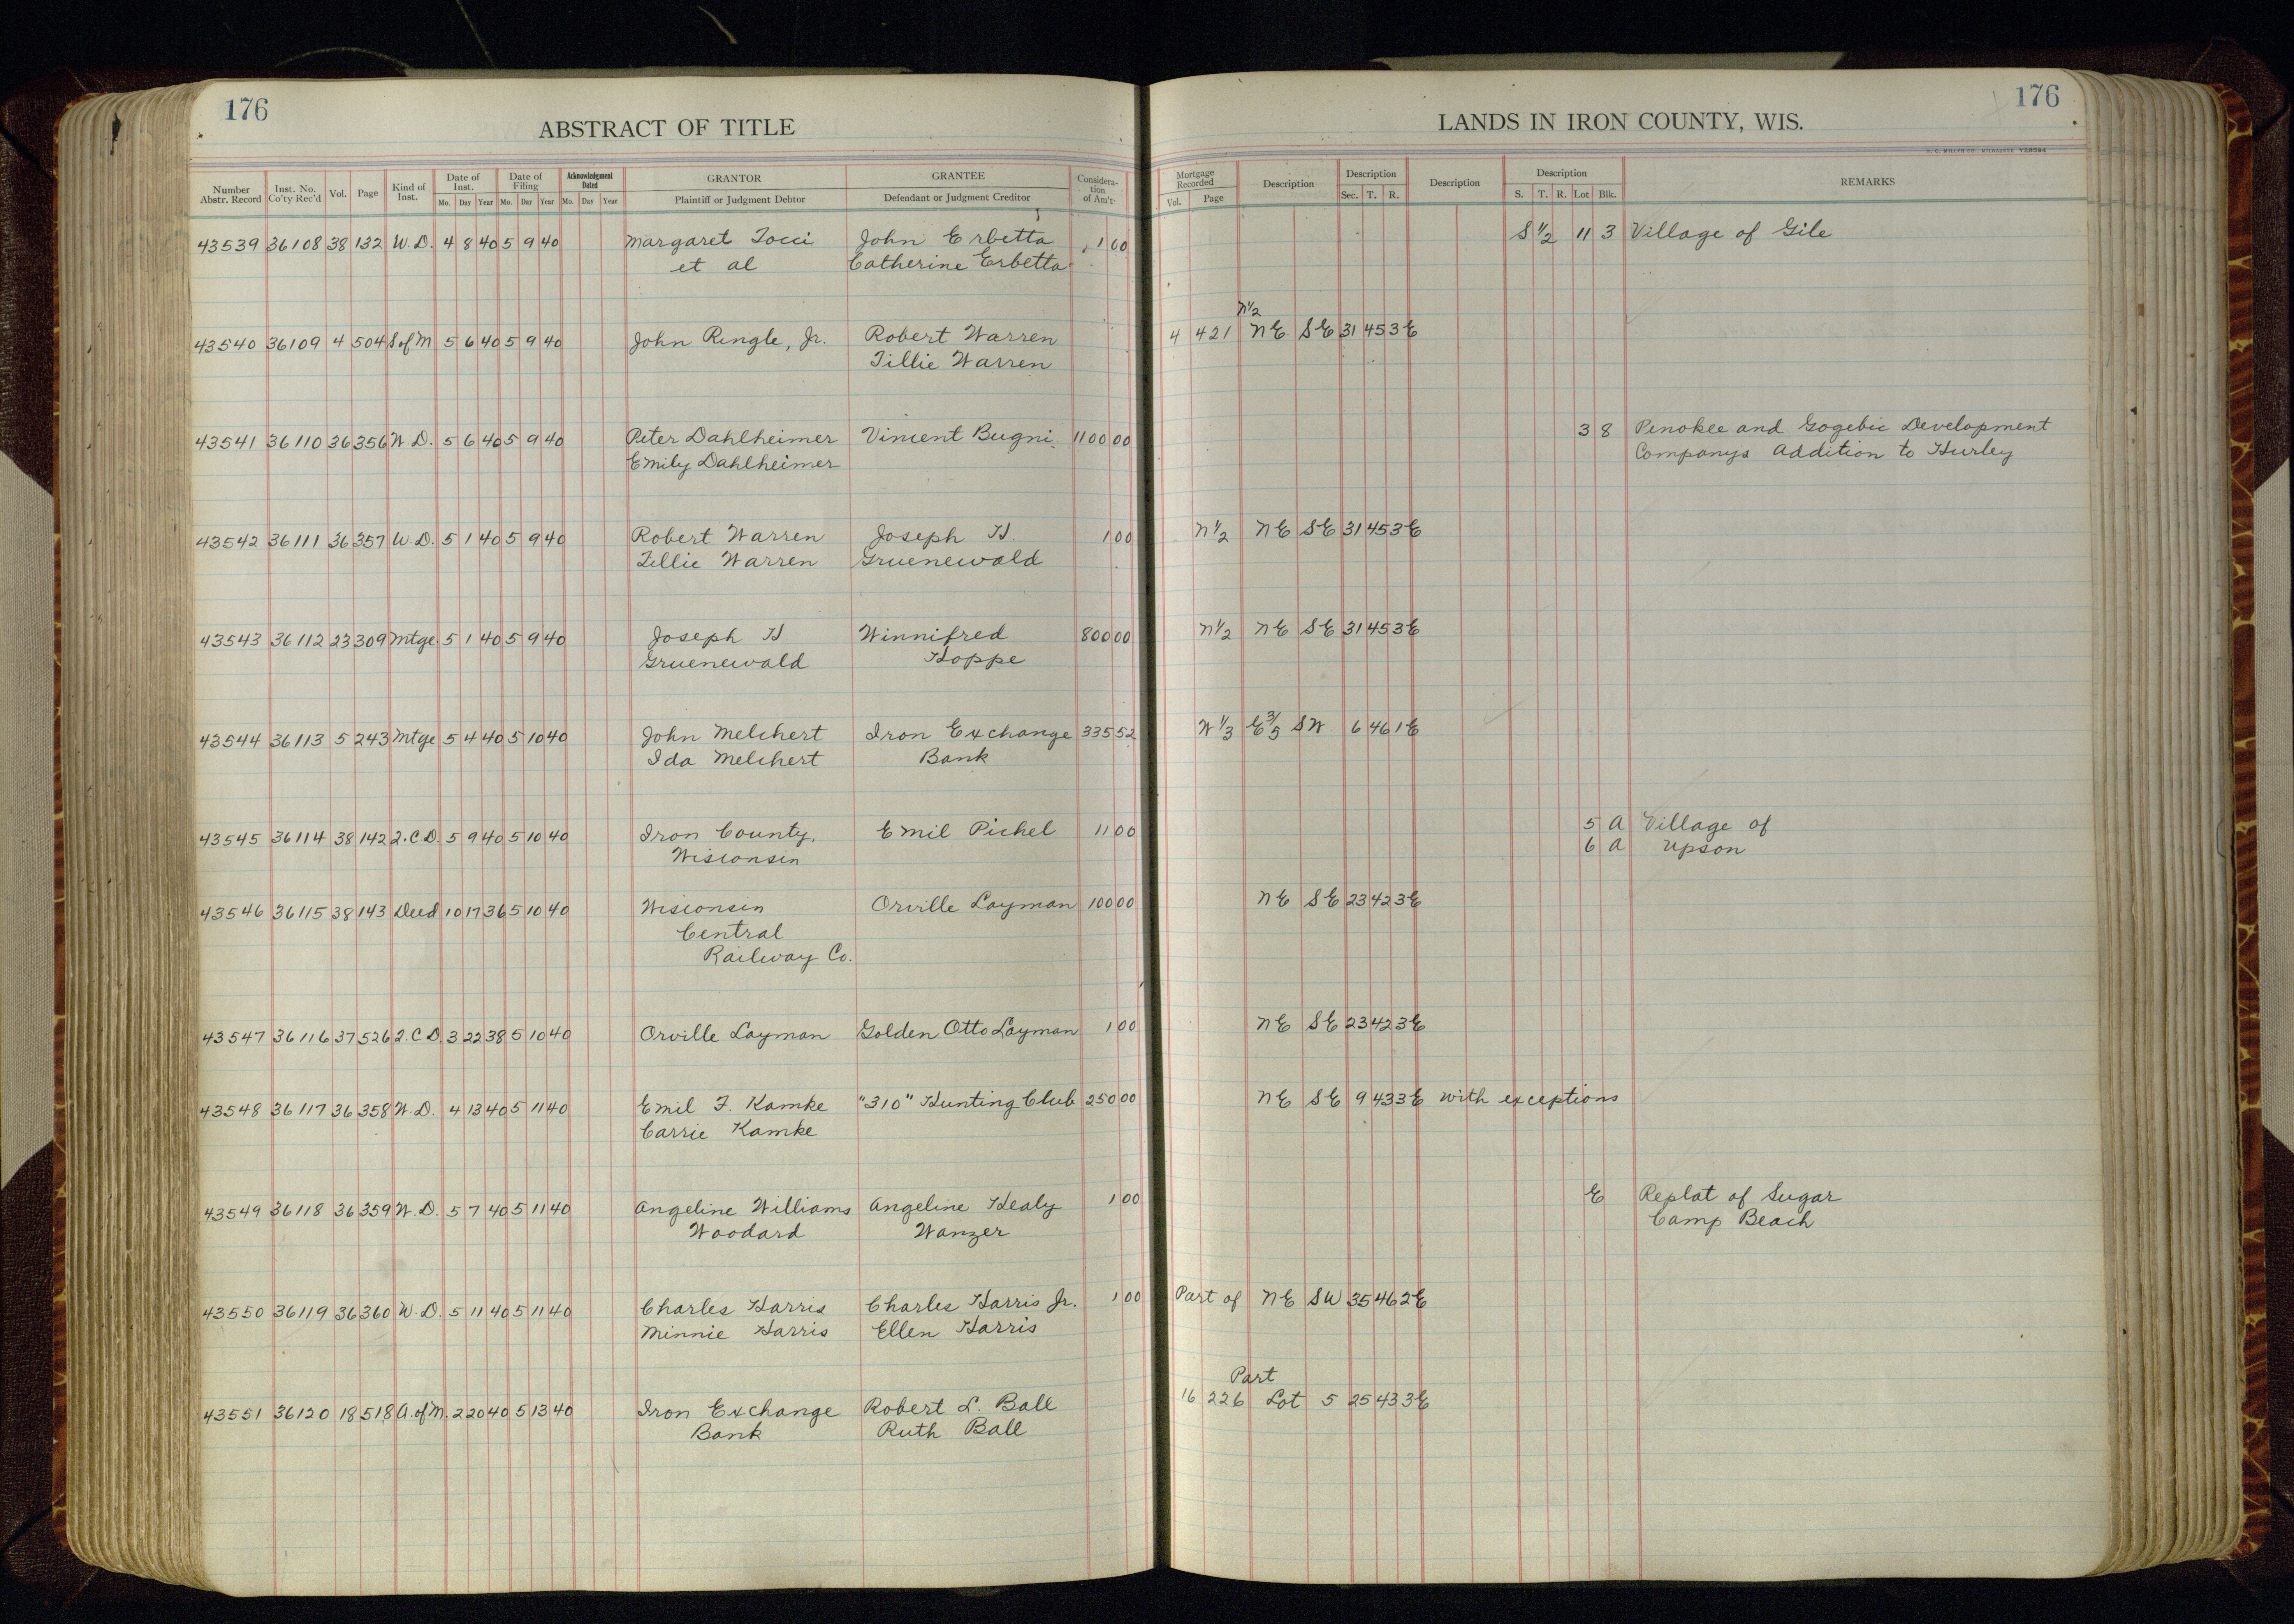 176
ABSTRACT OF TITLE
Number Abstr. Record | Inst. No. Co'ty Rec'd | Vol. | Page | Kind of Inst. | Date of Inst. Mo. Day Year | Date of Filing Mo. Day Year | Acknowledgment Dated Mo. Day Year | GRANTOR Plaintiff or Judgment Debtor | GRANTEE Defendant or Judgment Creditor | Consideration of Am't
43539 36108 38 132 W.D. 4 8 40 5 9 40 Margaret Tocci John Erbetta 1 00
et al Catherine Erbetta
43540 36109 4 504 S of M 5 6 40 5 9 40 John Ringle, Jr. Robert Warren
Tillie Warren
43541 36110 36 356 W.D. 5 6 40 5 9 40 Peter Dahlheimer Vincent Bugni 1100 00
Emily Dahlheimer
43542 36111 36 357 W.D. 5 1 40 5 9 40 Robert Warren Joseph H. 1 00
Tillie Warren Gruenewald
43543 36112 23 309 Mtge. 5 1 40 5 9 40 Joseph H. Winnifred 800 00
Gruenewald Hoppe
43544 36113 5 243 Mtge 5 4 40 5 10 40 John Melchert Iron Exchange 335 52
Ida Melchert Bank
43545 36114 38 142 Q.C.D. 5 9 40 5 10 40 Iron County, Emil Pichel 11 00
Wisconsin
43546 36115 38 143 Deed 10 17 36 5 10 40 Wisconsin Orville Layman 100 00
Central
Railway Co.
43547 36116 37 526 Q.C.D. 3 22 38 5 10 40 Orville Layman Golden Otto Layman 1 00
43548 36117 36 358 W.D. 4 13 40 5 11 40 Emil F. Kamke "310" Hunting Club 250 00
Carrie Kamke
43549 36118 36 359 W.D. 5 7 40 5 11 40 Angeline Williams Angeline Healy 1 00
Woodard Wanzer
43550 36119 36 360 W.D. 5 11 40 5 11 40 Charles Harris Charles Harris Jr. 1 00
Minnie Harris Ellen Harris
43551 36120 18 518 A. of M. 2 20 40 5 13 40 Iron Exchange Robert L. Ball
Bank Ruth Ball
176
LANDS IN IRON COUNTY, WIS.
H. C. MILLER CO., MILWAUKEE Y38594
Mortgage Recorded Vol. Page | Description | Description Sec. T. R. | Description | Description S. T. R. Lot Blk. | REMARKS
S 1/2 11 3 Village of Gile
N 1/2
4 421 NE SE 31 45 3E
3 8 Penokee and Gogebic Development
Companys Addition to Hurley
N 1/2 NE SE 31 45 3E
N 1/2 NE SE 31 45 3E
W 1/3 E 3/5 SW 6 46 1E
5 A Village of
6 A Upson
NE SE 23 42 3E
NE SE 23 42 3E
NE SE 9 43 3E with exceptions
E Replat of Sugar
Camp Beach
Part of NE SW 35 46 2E
Part
16 226 Lot 5 25 43 3E